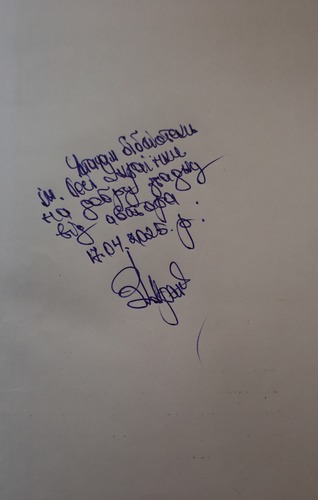 Читачам бібліотеки
ім. Лесі Українки
на добру згадку
від автора.
17.04.2025 р.